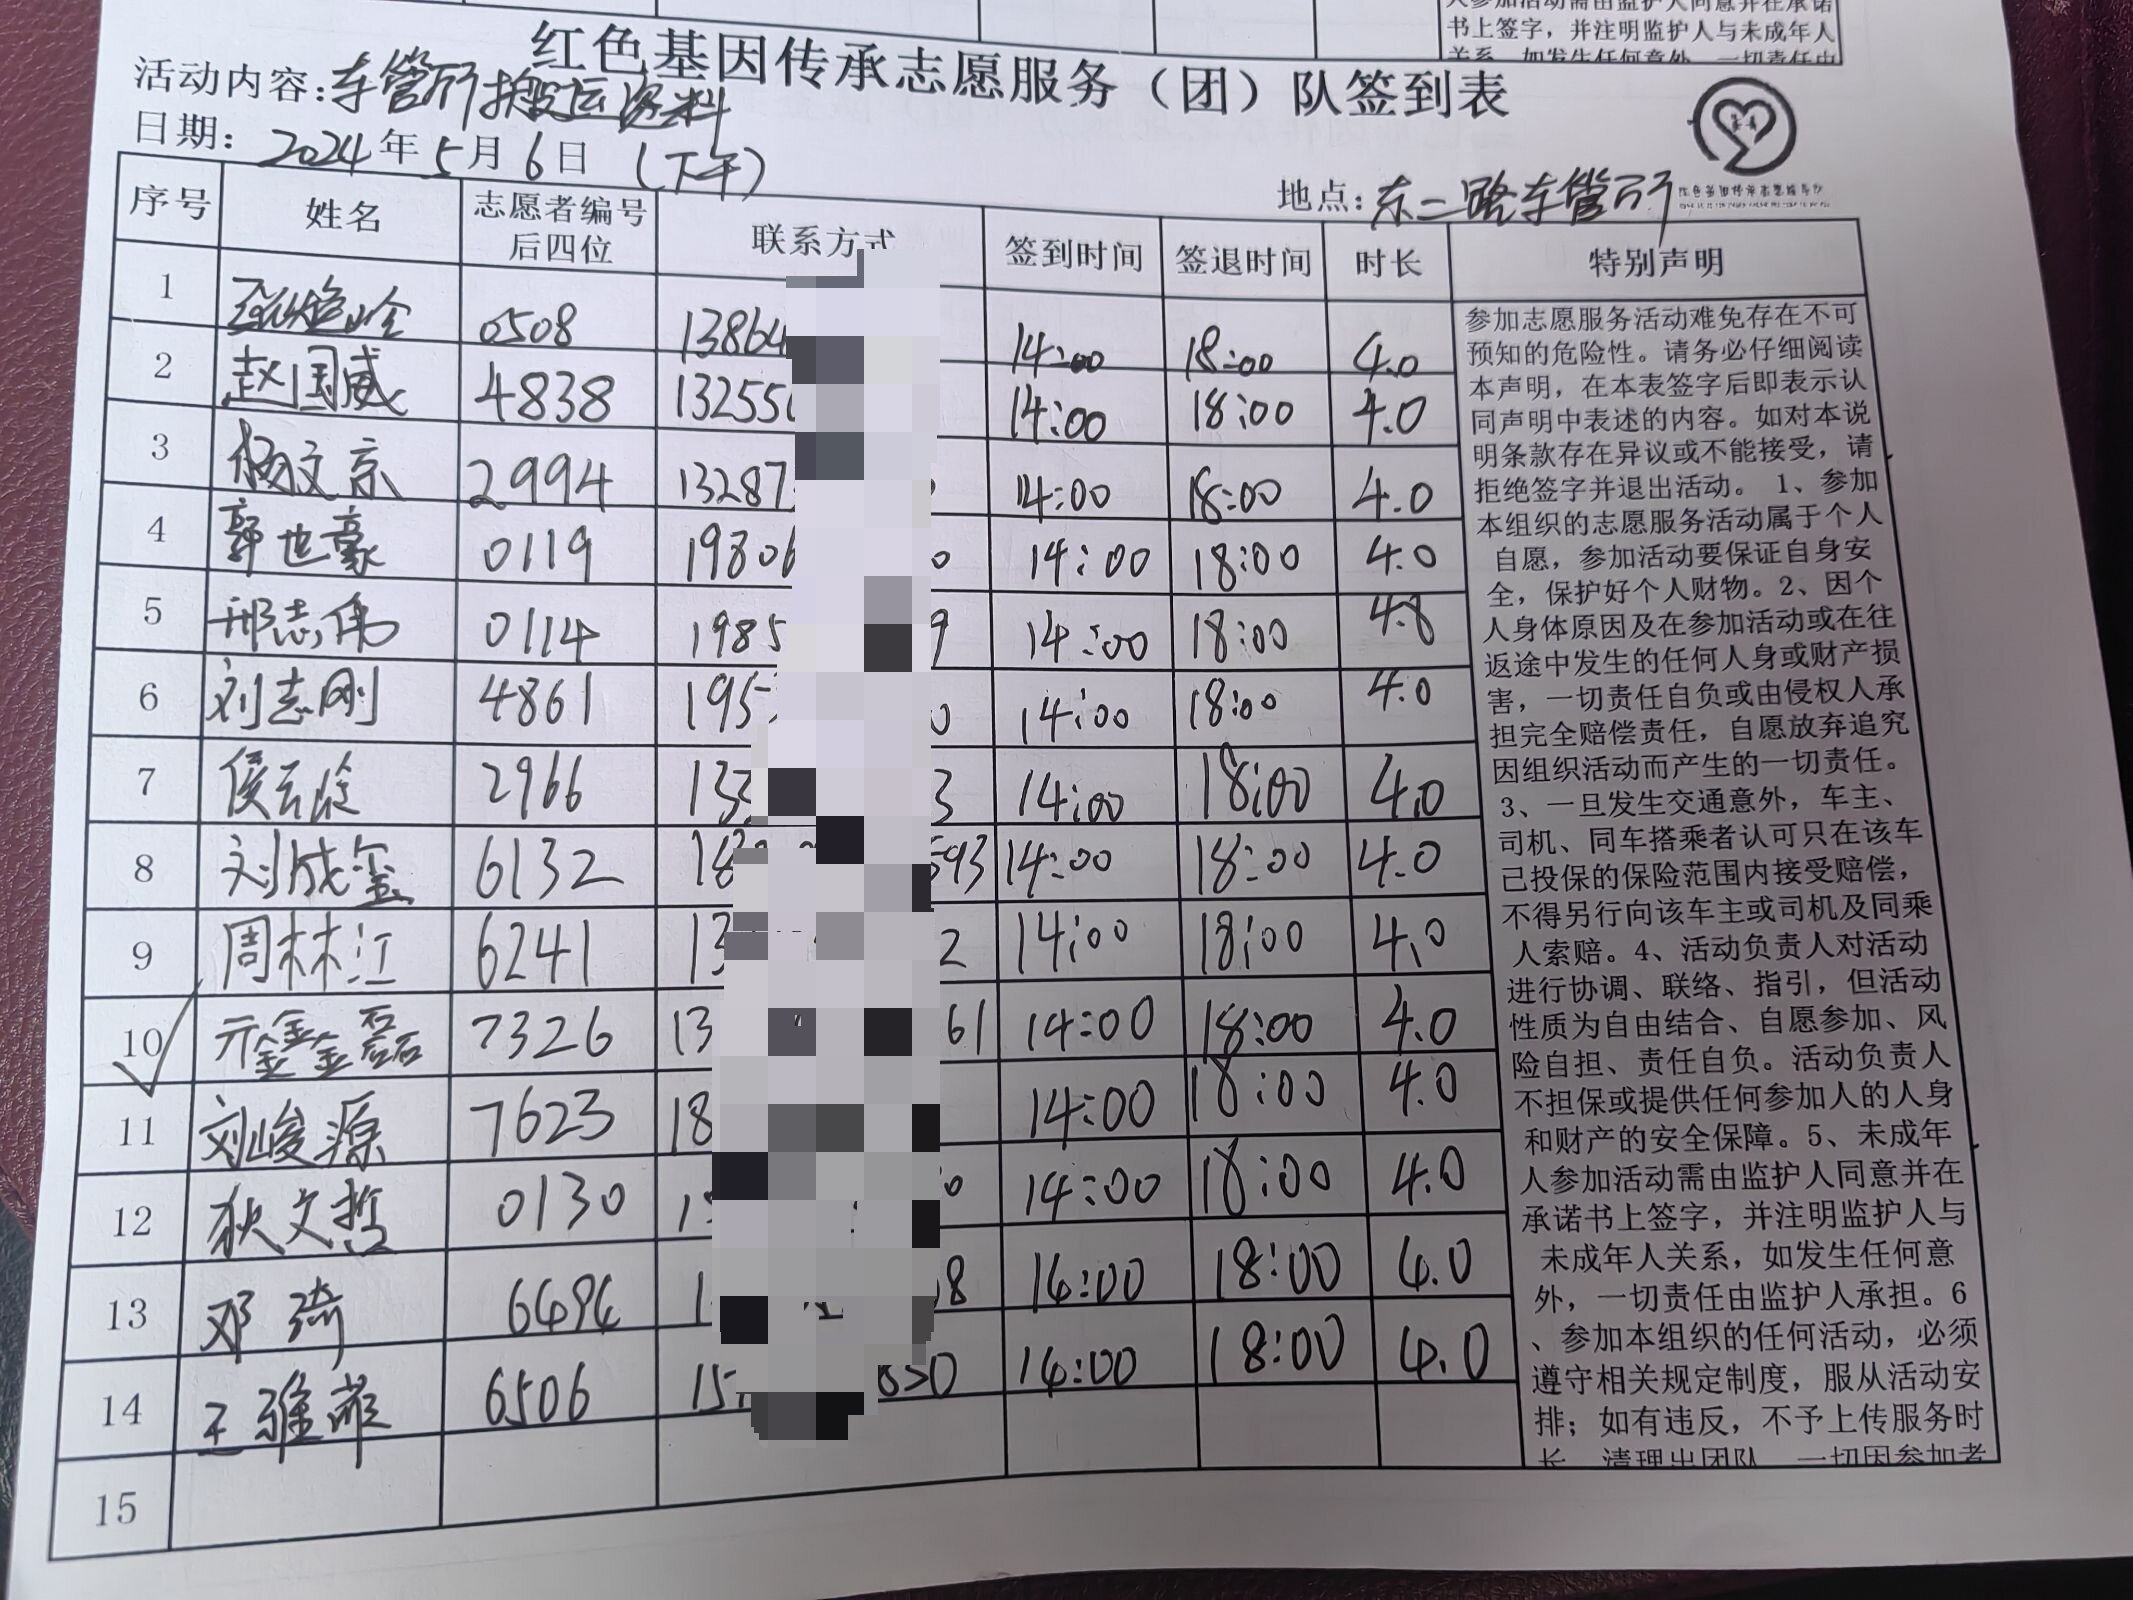 人参加活动需由监护人同意并在承诺
书上签字，并注明监护人与未成年人
关系，如发生任何意外，一切责任由
红色基因传承志愿服务（团）队签到表
活动内容：车管所搬运资料
日期：2024年5月6日（下午）
地点：东二路车管所
序号 姓名 志愿者编号后四位 联系方式 签到时间 签退时间 时长 特别声明
1 0508 13864 14:00 18:00 4.0
2 赵国威 4838 13255 14:00 18:00 4.0
3 杨文京 2994 13287 14:00 18:00 4.0
4 郭世豪 0119 19806 0 14:00 18:00 4.0
5 邢志伟 0114 1985 9 14:00 18:00 4.8
6 刘志刚 4861 195 0 14:00 18:00 4.0
7 侯云 2966 133 3 14:00 18:00 4.0
8 刘成鑫 6132 18 593 14:00 18:00 4.0
9 周林江 6241 13 2 14:00 18:00 4.0
10 亓鑫鑫磊 7326 13 61 14:00 18:00 4.0
11 刘峻源 7623 18 14:00 18:00 4.0
12 狄文哲 0130 1 0 14:00 18:00 4.0
13 邓琦 6494 1 8 14:00 18:00 4.0
14 王雅 6506 15 0 14:00 18:00 4.0
15
参加志愿服务活动难免存在不可
预知的危险性。请务必仔细阅读
本声明，在本表签字后即表示认
同声明中表述的内容。如对本说
明条款存在异议或不能接受，请
拒绝签字并退出活动。 1、参加
本组织的志愿服务活动属于个人
自愿，参加活动要保证自身安
全，保护好个人财物。2、因个
人身体原因及在参加活动或在往
返途中发生的任何人身或财产损
害，一切责任自负或由侵权人承
担完全赔偿责任，自愿放弃追究
因组织活动而产生的一切责任。
3、一旦发生交通意外，车主、
司机、同车搭乘者认可只在该车
已投保的保险范围内接受赔偿，
不得另行向该车主或司机及同乘
人索赔。4、活动负责人对活动
进行协调、联络、指引，但活动
性质为自由结合、自愿参加、风
险自担、责任自负。活动负责人
不担保或提供任何参加人的人身
和财产的安全保障。5、未成年
人参加活动需由监护人同意并在
承诺书上签字，并注明监护人与
未成年人关系，如发生任何意
外，一切责任由监护人承担。6
、参加本组织的任何活动，必须
遵守相关规定制度，服从活动安
排；如有违反，不予上传服务时
长，清理出团队，一切因参加者